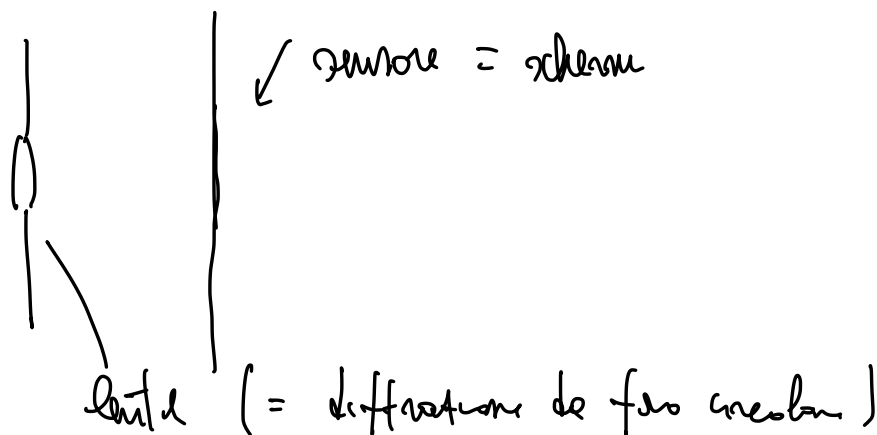 sensore = schermo
lente (= diffrazione da foro circolare)